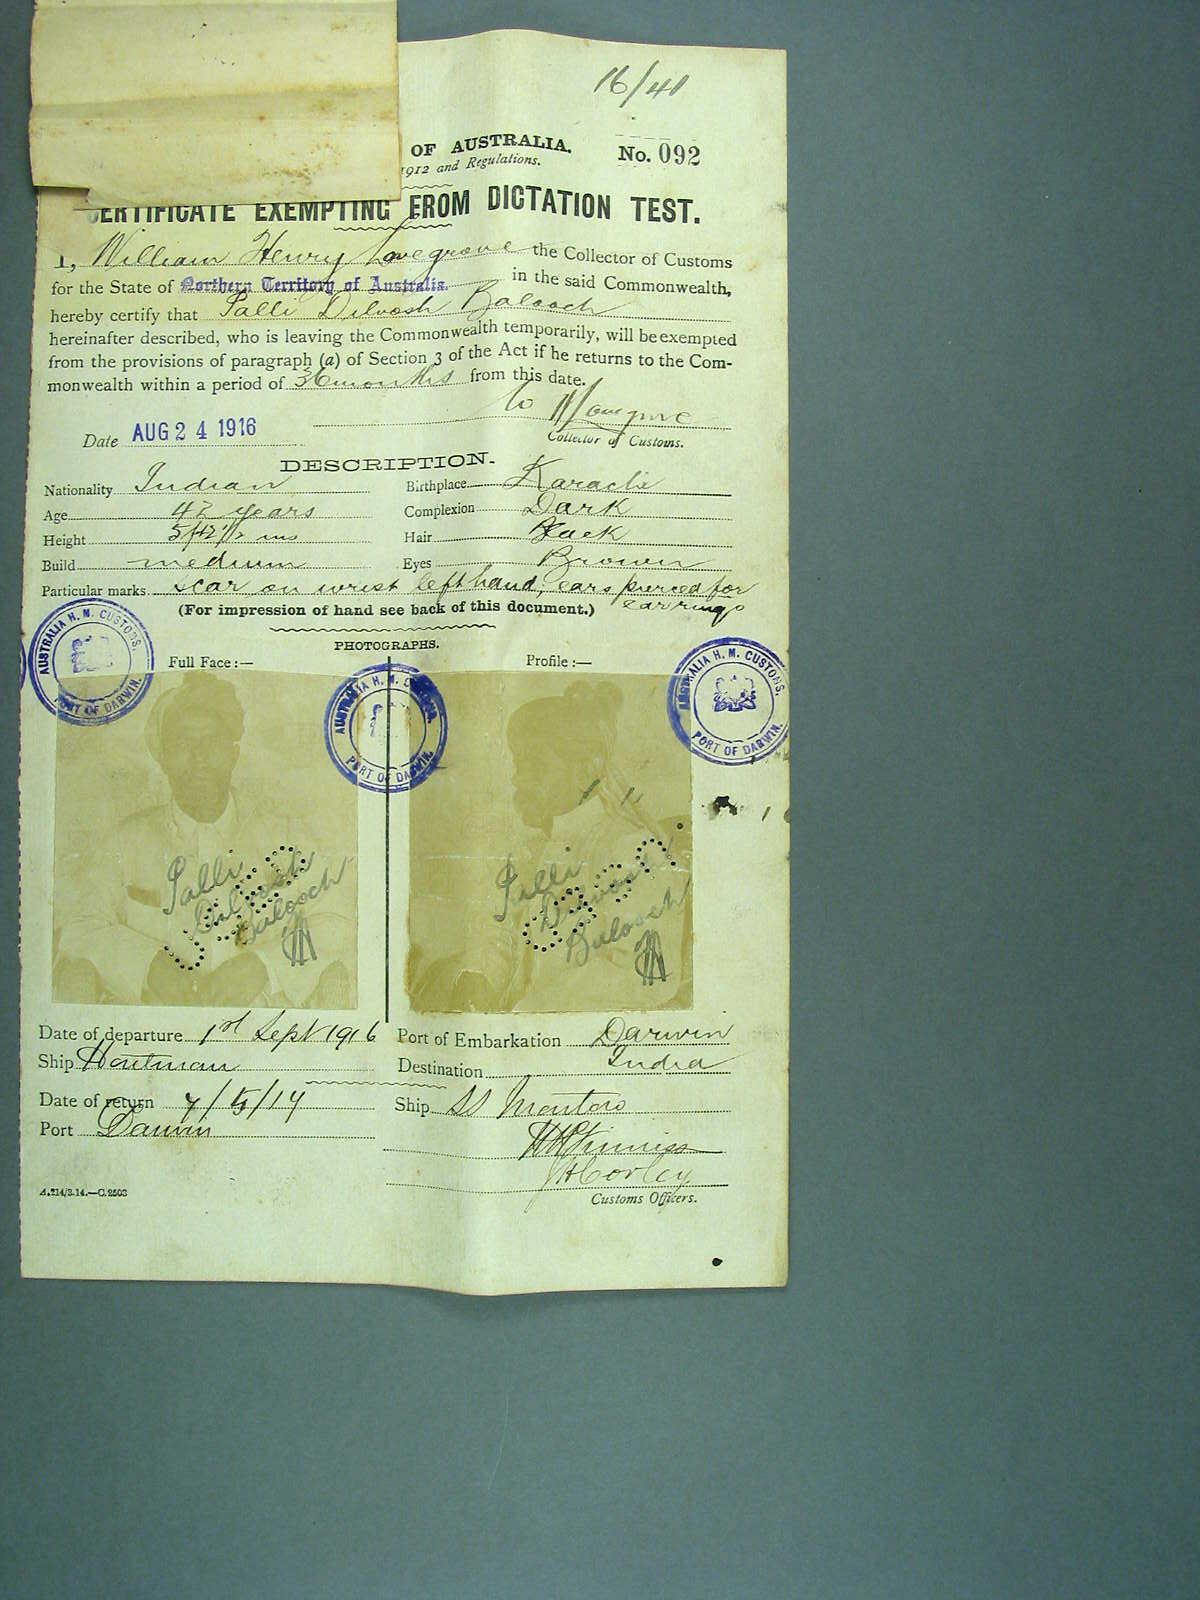 16/41
OF AUSTRALIA.
No. 092
1912 and Regulations.
CERTIFICATE EXEMPTING FROM DICTATION TEST.
I, William Henry Lovegrove the Collector of Customs
for the State of Northern Territory of Australia. in the said Commonwealth,
hereby certify that Palli Dilvosh Balooch
hereinafter described, who is leaving the Commonwealth temporarily, will be exempted
from the provisions of paragraph (a) of Section 3 of the Act if he returns to the Com-
monwealth within a period of 36 months from this date.
W H Lovegrove
Date AUG 24 1916
Collector of Customs.
DESCRIPTION.
Nationality Indian Birthplace Karachi
Age 42 years Complexion Dark
Height 5ft 2 1/2 ins Hair Black
Build medium Eyes Brown
Particular marks scar on wrist left hand, ears pierced for
earrings
(For impression of hand see back of this document.)
PHOTOGRAPHS.
Full Face:— Profile:—
AUSTRALIA H. M. CUSTOMS. PORT OF DARWIN.
AUSTRALIA H. M. CUSTOMS. PORT OF DARWIN.
AUSTRALIA H. M. CUSTOMS. PORT OF DARWIN.
Palli Dilvosh Balooch
Palli Dilvosh Balooch
Date of departure 1st Sept 1916 Port of Embarkation Darwin
Ship Houtman Destination India
Date of return 7/5/17 Ship SS Montoro
Port Darwin
Customs Officers.
A.214/3.14.—C.2503